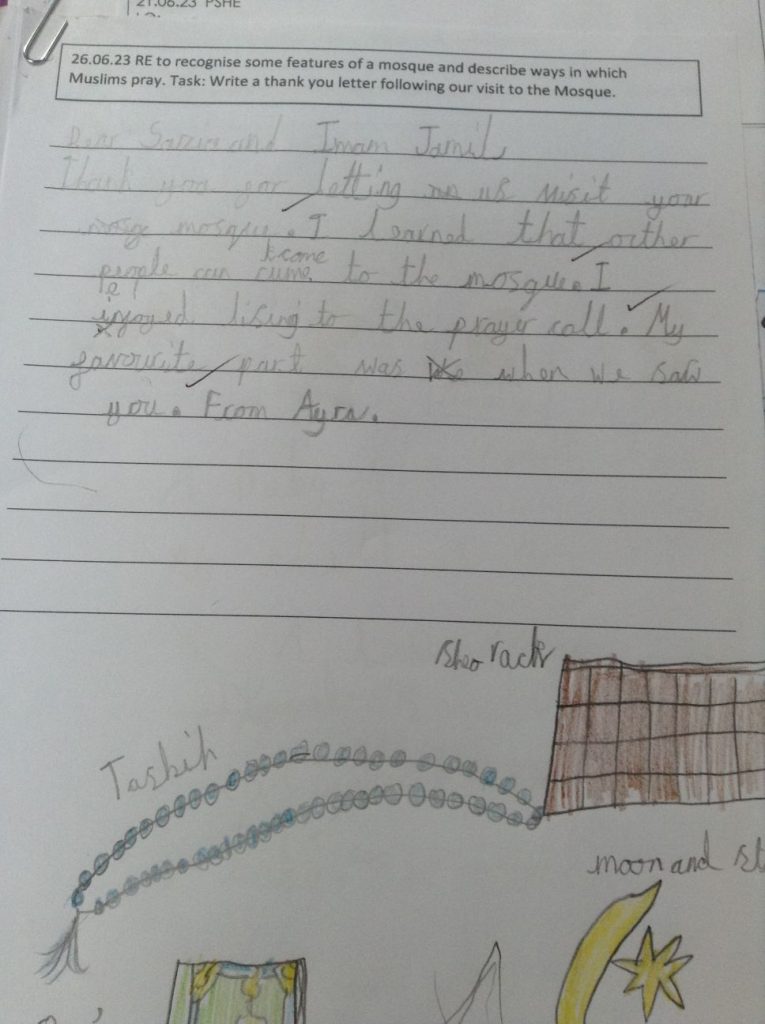 21.06.23 PSHE
26.06.23 RE to recognise some features of a mosque and describe ways in which
Muslims pray. Task: Write a thank you letter following our visit to the Mosque.
Dear and Imam Jamil
Thank you for letting us visit your
mosque. I learned that orther
people can come to the mosque. I
enjoyed lising to the prayer call. My
favourite part was when we saw
you. From Ayra.
Sheo rack
Tasbih
moon and st